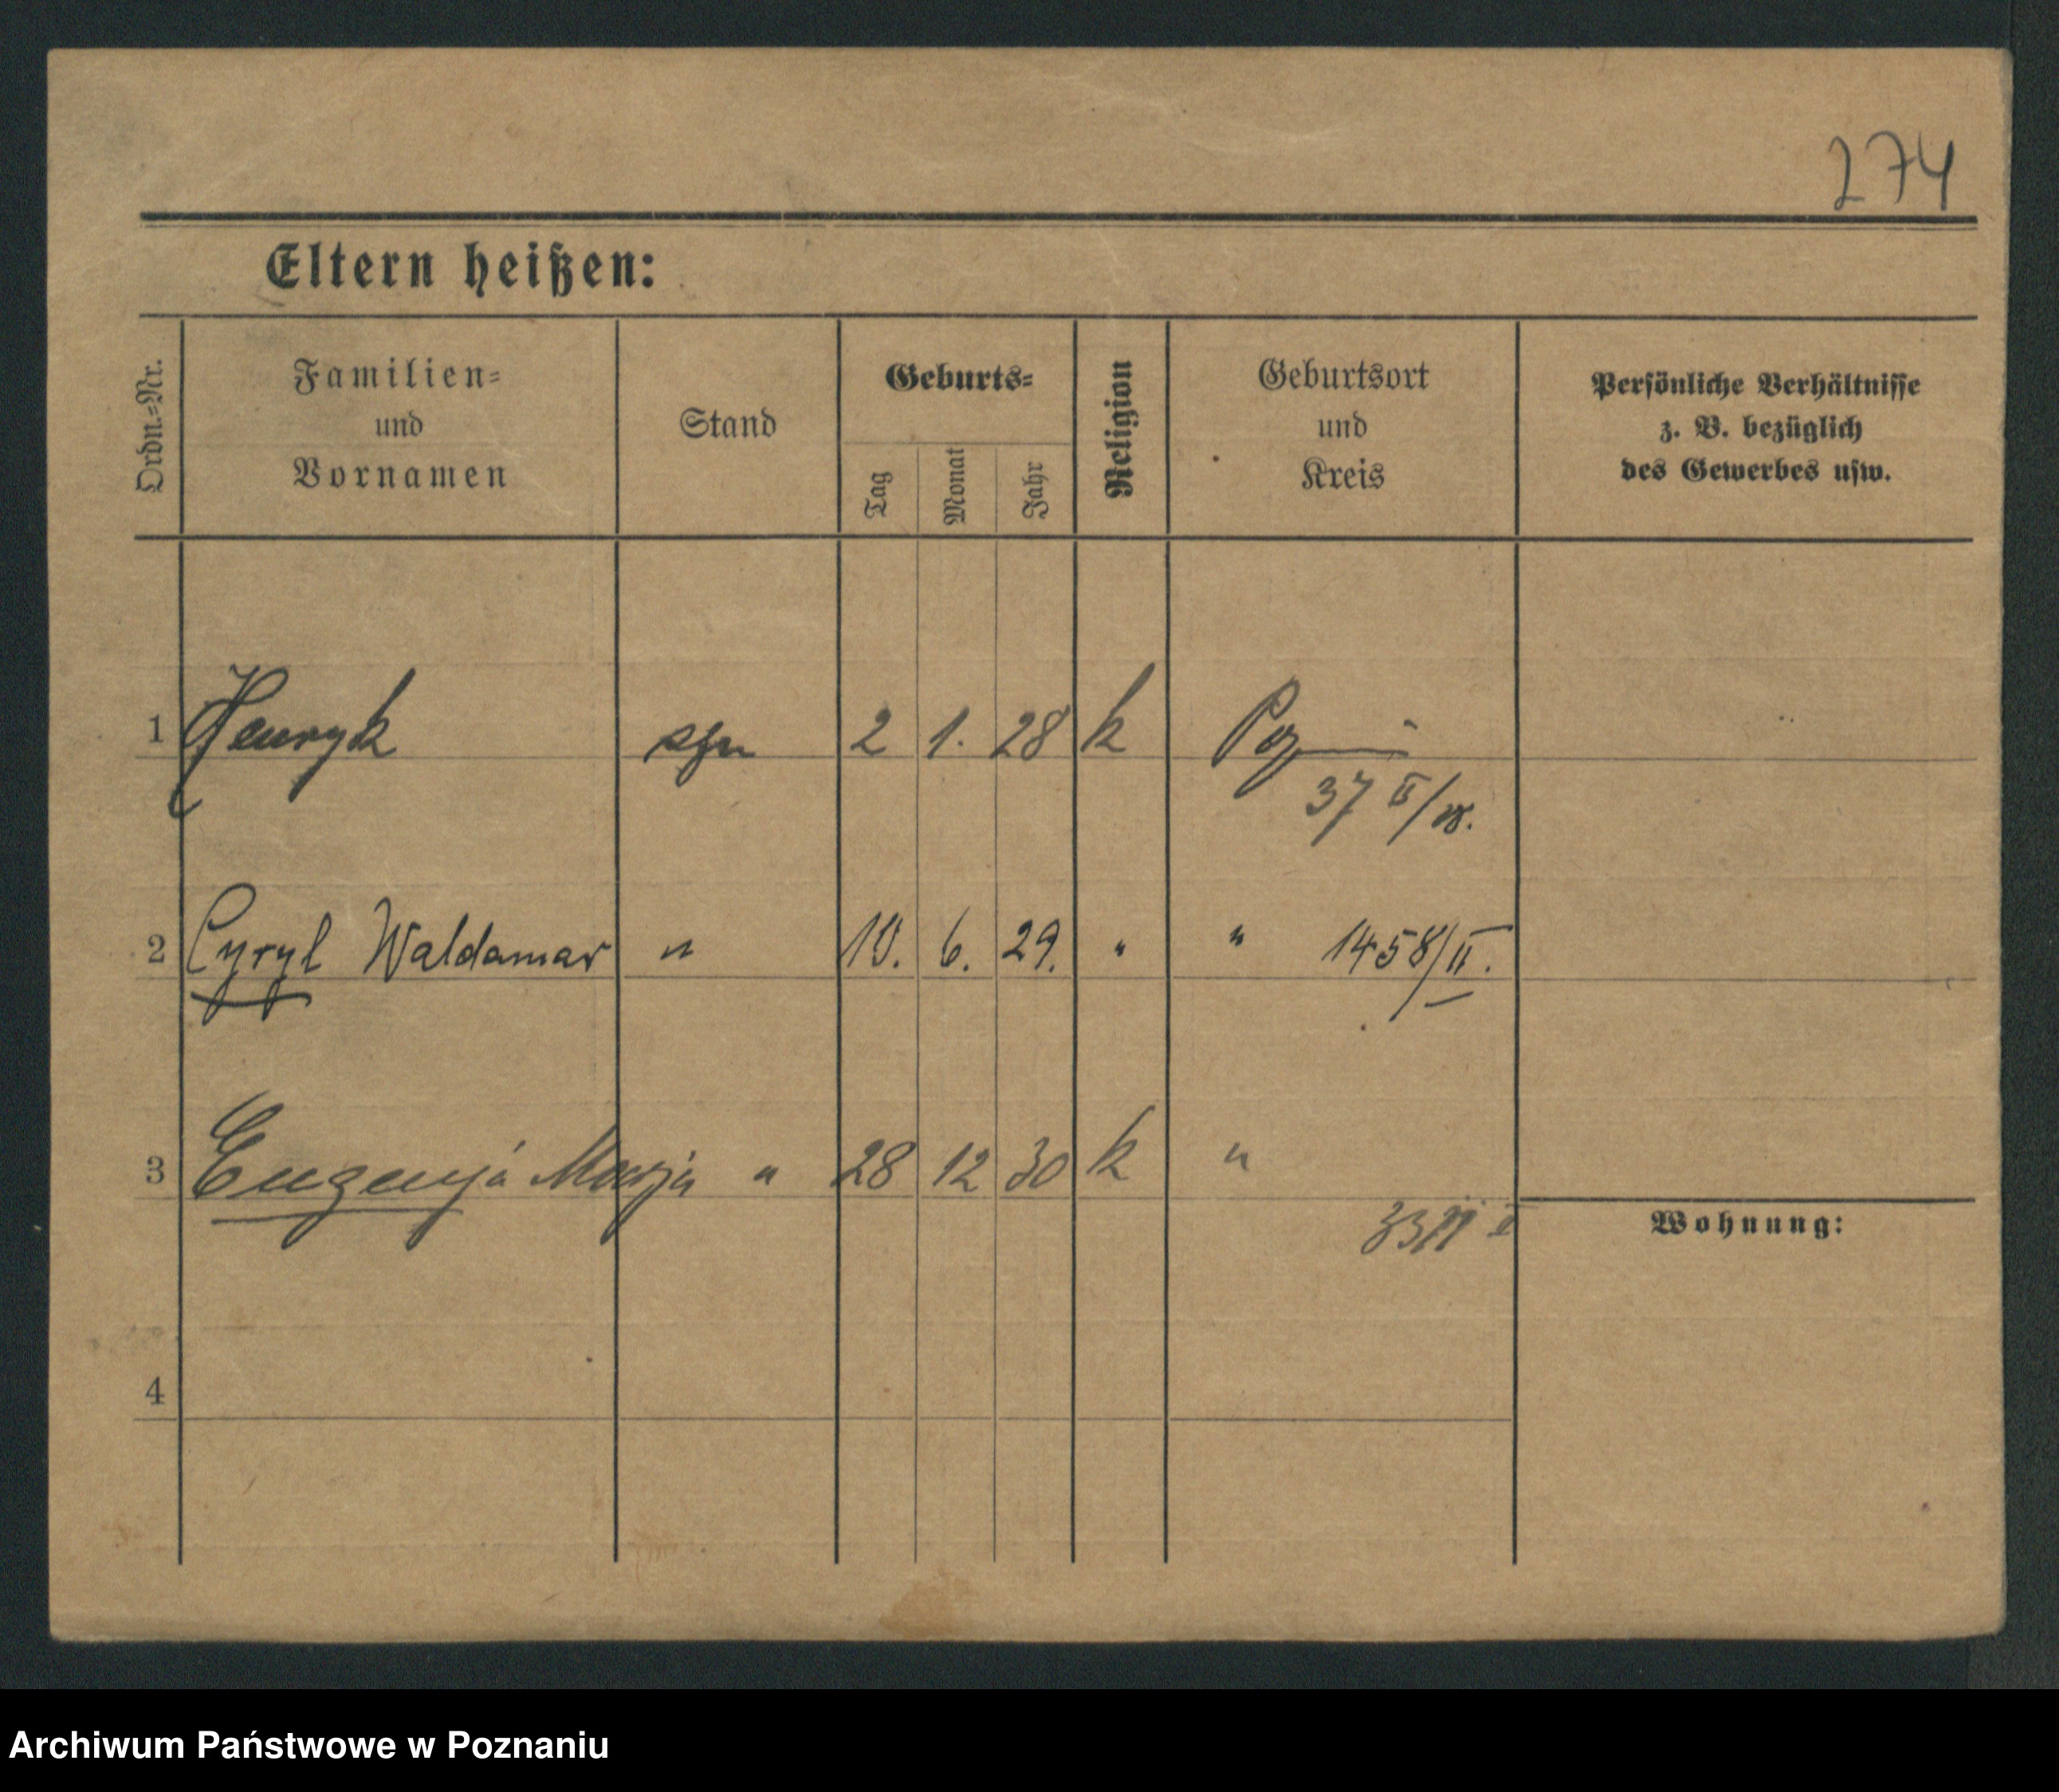 274
Eltern heißen:
Ordn.-Nr.
Familien-
und
Vornamen
Stand
Geburts-
Tag
Monat
Jahr
Religion
Geburtsort
und
Kreis
Persönliche Verhältnisse
z. B. bezüglich
des Gewerbes usw.
1 Henryk 2 1. 28 k Poz
37 II/28.
2 Cyryl Waldamar " 10. 6. 29. " " 1458/II.
3 Eugenja Marja " 28 12 30 k "
Wohnung:
4
Archiwum Państwowe w Poznaniu